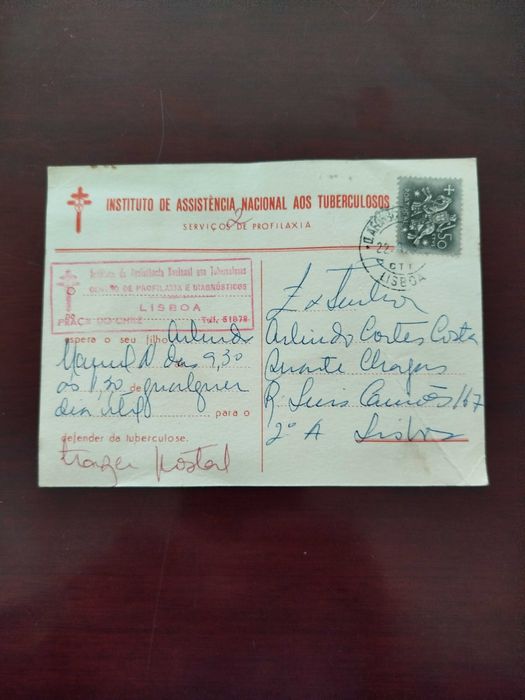 INSTITUTO DE ASSISTÊNCIA NACIONAL AOS TUBERCULOSOS
2
SERVIÇOS DE PROFILAXIA
CTT
LISBOA
Instituto de Assistência Nacional aos Tuberculosos
CENTRO DE PROFILAXIA E DIAGNÓSTICOS
LISBOA
PRAÇA DO CHILE Telf. 51878
espera o seu filho Arlindo
Manuel das 9,30
às de qualquer
dia útil para o
defender da tuberculose.
trazer postal
Senhor
Arlindo Cortes Costa
Duarte Chagas
R. Luis Camões 167
2º A Lisboa